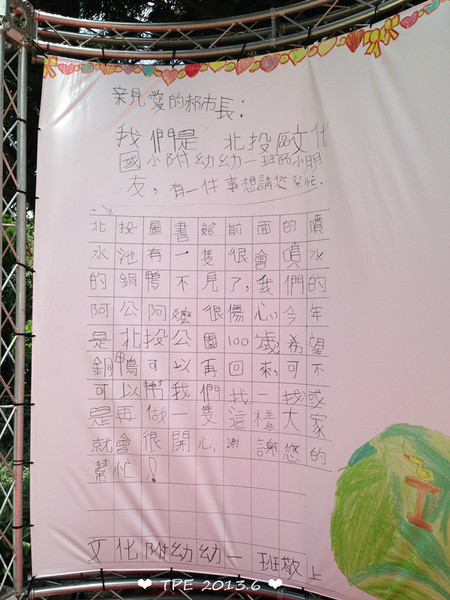 親愛的郝市長：
我們是 北投區文化
國小附幼幼一班的小朋
友，有一件事想請您幫忙.
北投圖書館前面的噴
水池有一隻很會噴水
的銅鴨不見了,我們的
阿公阿嬤很傷心,今年
是北投公園100歲希望
銅鴨可以再回來,可不
可以幫我們找一找或
是再做一隻這樣大家
就會很開心,謝謝您的
幫忙！
文化附幼幼一班敬上
❤ TPE 2013.6 ❤